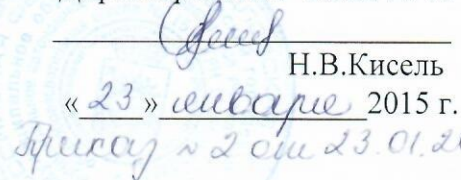 Н.В.Кисель
«23» января 2015 г.
Приказ № 2 от 23.01.2